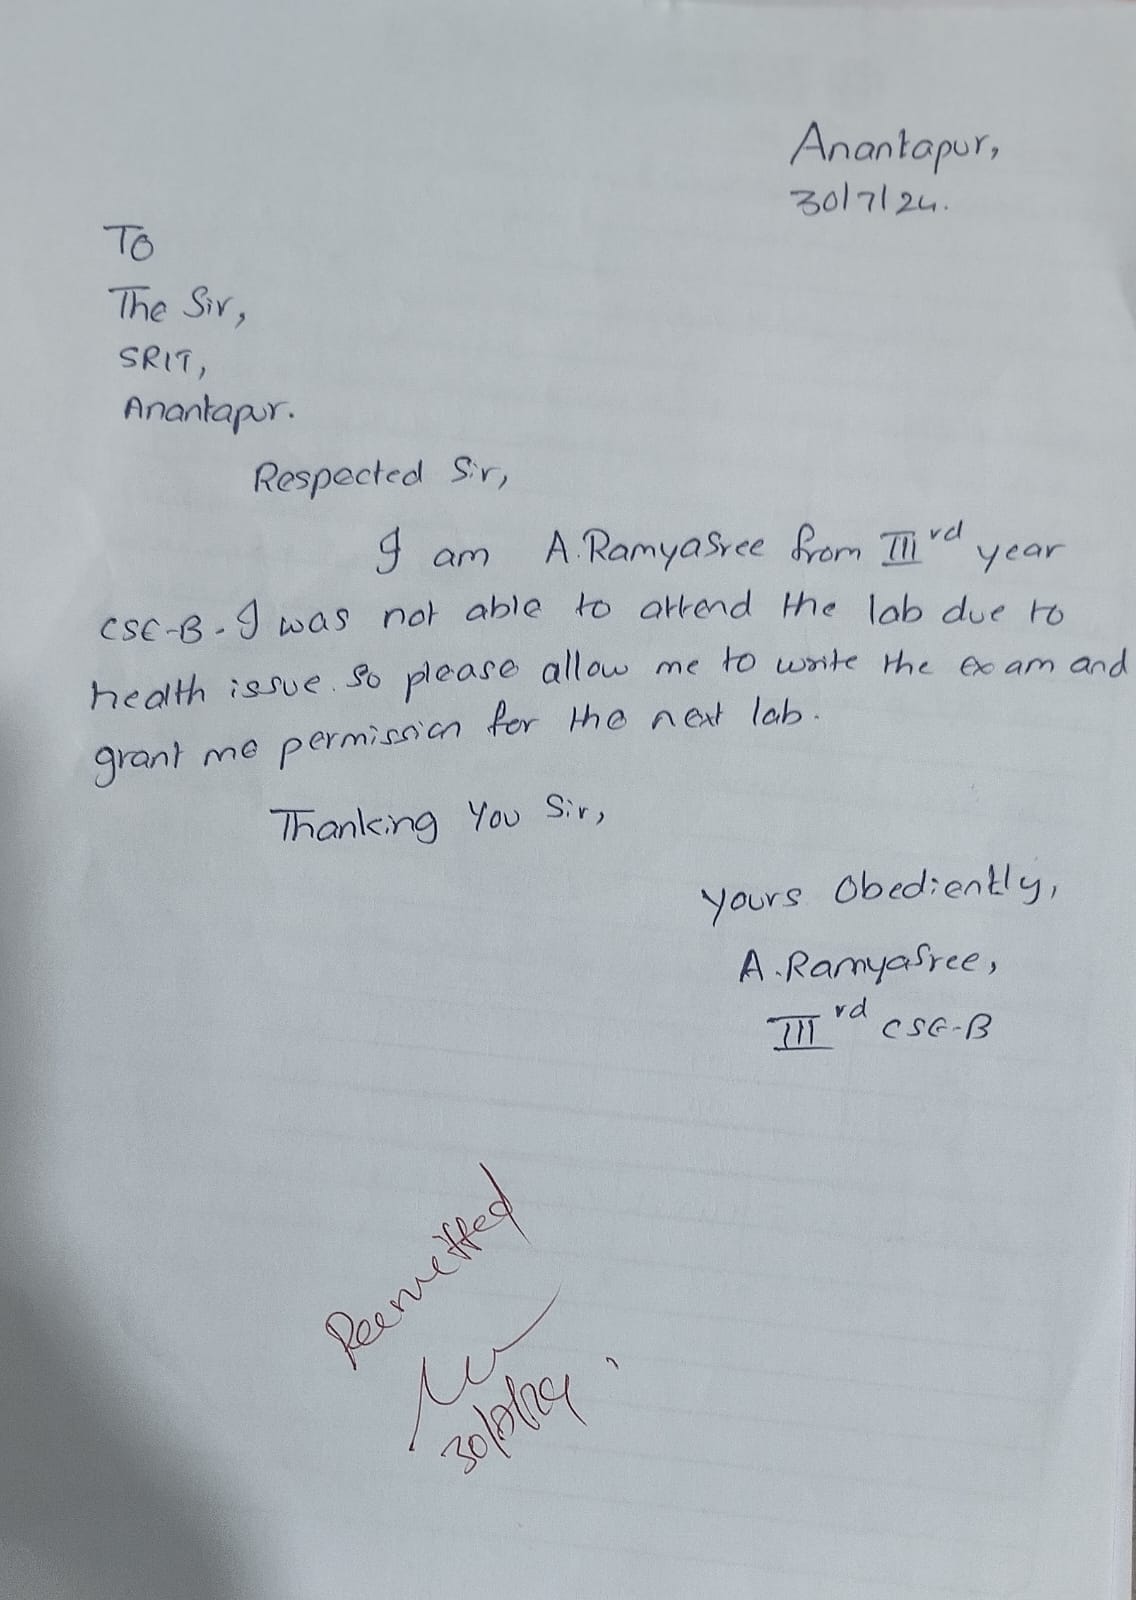 Anantapur,
30/7/24.
TO
The Sir,
SRIT,
Anantapur.
Respected Sir,
I am A.Ramyasree from III rd year
CSE-B. I was not able to attend the lab due to
health issue. So please allow me to write the exam and
grant me permission for the next lab.
Thanking You Sir,
Yours Obediently,
A.Ramyasree,
III rd CSE-B
Permitted